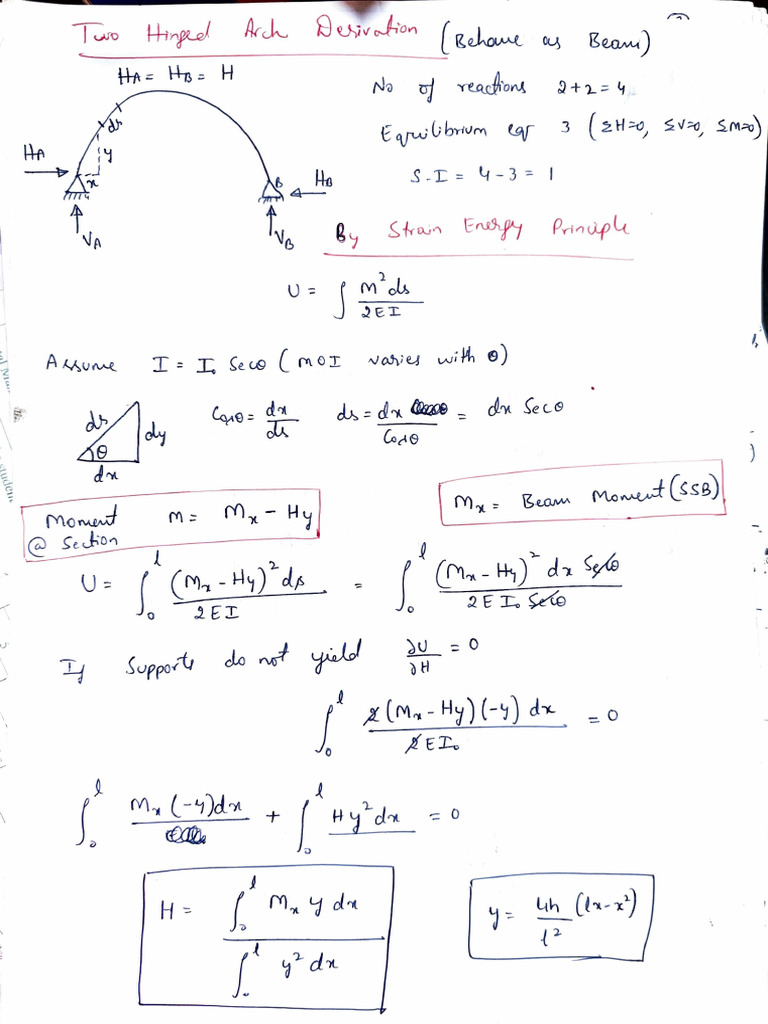 Two Hinged Arch Derivation (Behave as Beam)
HA = HB = H
No of reactions 2+2=4
Equilibrium eqn 3 (ΣH=0, ΣV=0, ΣM=0)
S.I = 4-3 = 1
ds
y
x
HA
HB
B
VA
VB
By Strain Energy Principle
U = ∫ M²ds / 2EI
Assume I = I₀ Secθ (MOI varies with θ)
ds
dy
θ
dx
Cosθ = dx/ds ds = dx/Cosθ = dx Secθ
Moment @ Section M = Mx - Hy
Mx = Beam Moment (SSB)
U = ∫₀^l (Mx - Hy)² ds / 2EI = ∫₀^l (Mx - Hy)² dx Secθ / 2EI₀ Secθ
If Supports do not yield ∂U/∂H = 0
∫₀^l 2(Mx - Hy)(-y) dx / 2EI₀ = 0
∫₀^l Mx(-y)dx + ∫₀^l Hy²dx = 0
H = ∫₀^l Mx y dx / ∫₀^l y² dx
y = 4h/l² (lx - x²)